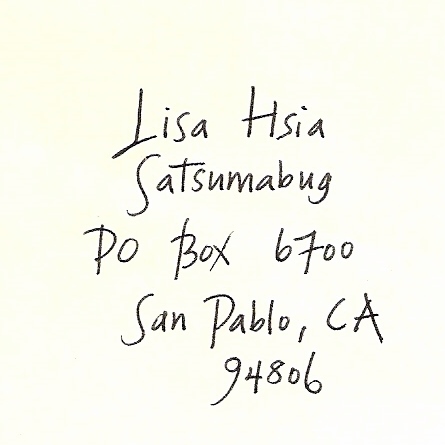 Lisa Hsia
Satsumabug
PO Box 6700
San Pablo, CA
94806